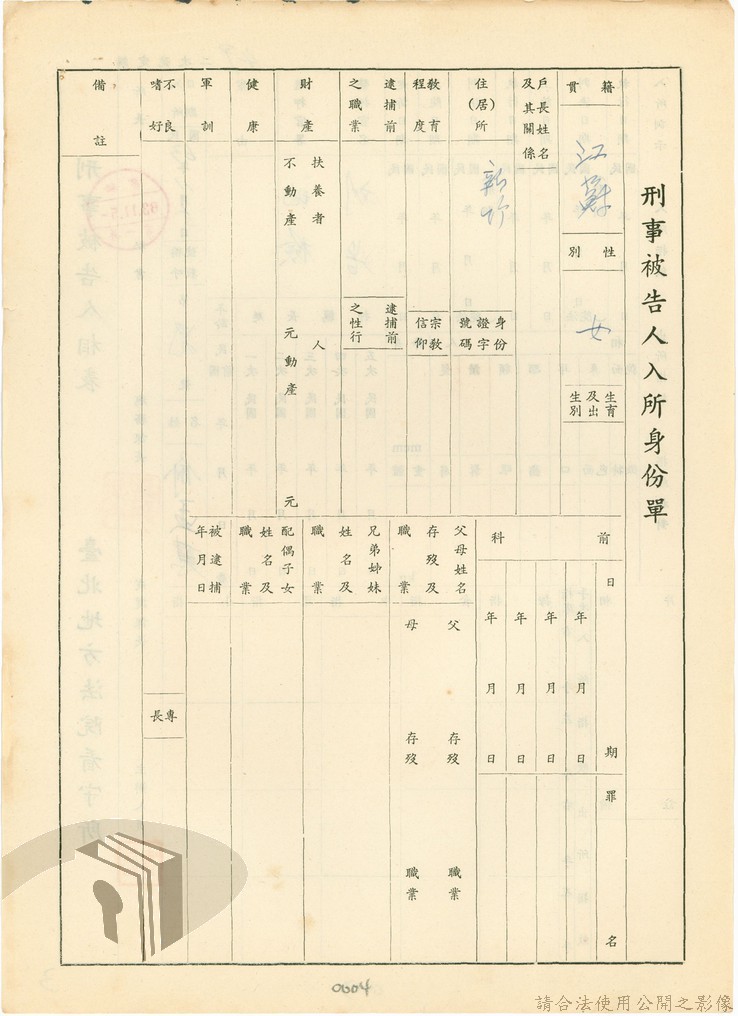 刑事被告人入所身份單
籍貫
江蘇
性別
女
生育及出生別
戶長姓名及其關係
住(居)所
新竹
身份證字號碼
教育程度
宗教信仰
逮捕前之職業
逮捕前之性行
財產
扶養者 人
不動產 元動產 元
健康
軍訓
不良嗜好
專長
備註
前科
日期
年 月 日
年 月 日
年 月 日
年 月 日
罪名
父母姓名存歿及職業
父 存歿 職業
母 存歿 職業
兄弟姊妹姓名及職業
配偶子女姓名及職業
被逮捕年月日
0004
請合法使用公開之影像